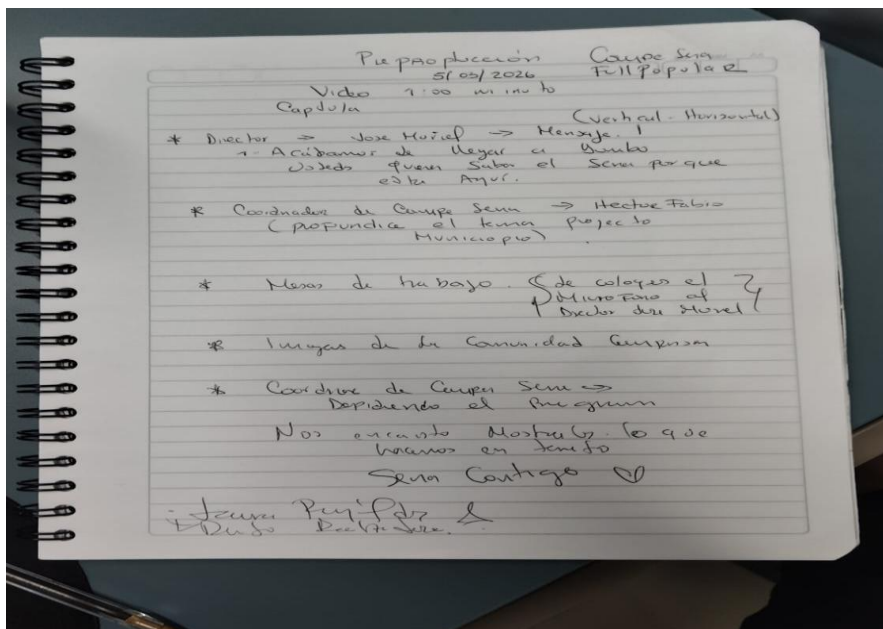 Preproducción Campe Sena
5/03/2026 Full Popular
Video 1:00 minuto
Capsula
(Vertical - Horizontal)
* Director ⇒ Jose Muriel → Mensaje. 1
1- Acabamos de llegar a
Ustedes quieren saber el Sena por que
esta Aquí.
* Coordinador de Campe Sena ⇒ Hector Fabio
(profundice el tema projecto
Municipio)
* Mesas de trabajo. de el
Microfono al
Director Jose Muriel
* Imagenes de la Comunidad
* de Campe Sena ⇒
el
Nos encanto lo que
hacemos en
Sena Contigo ♡